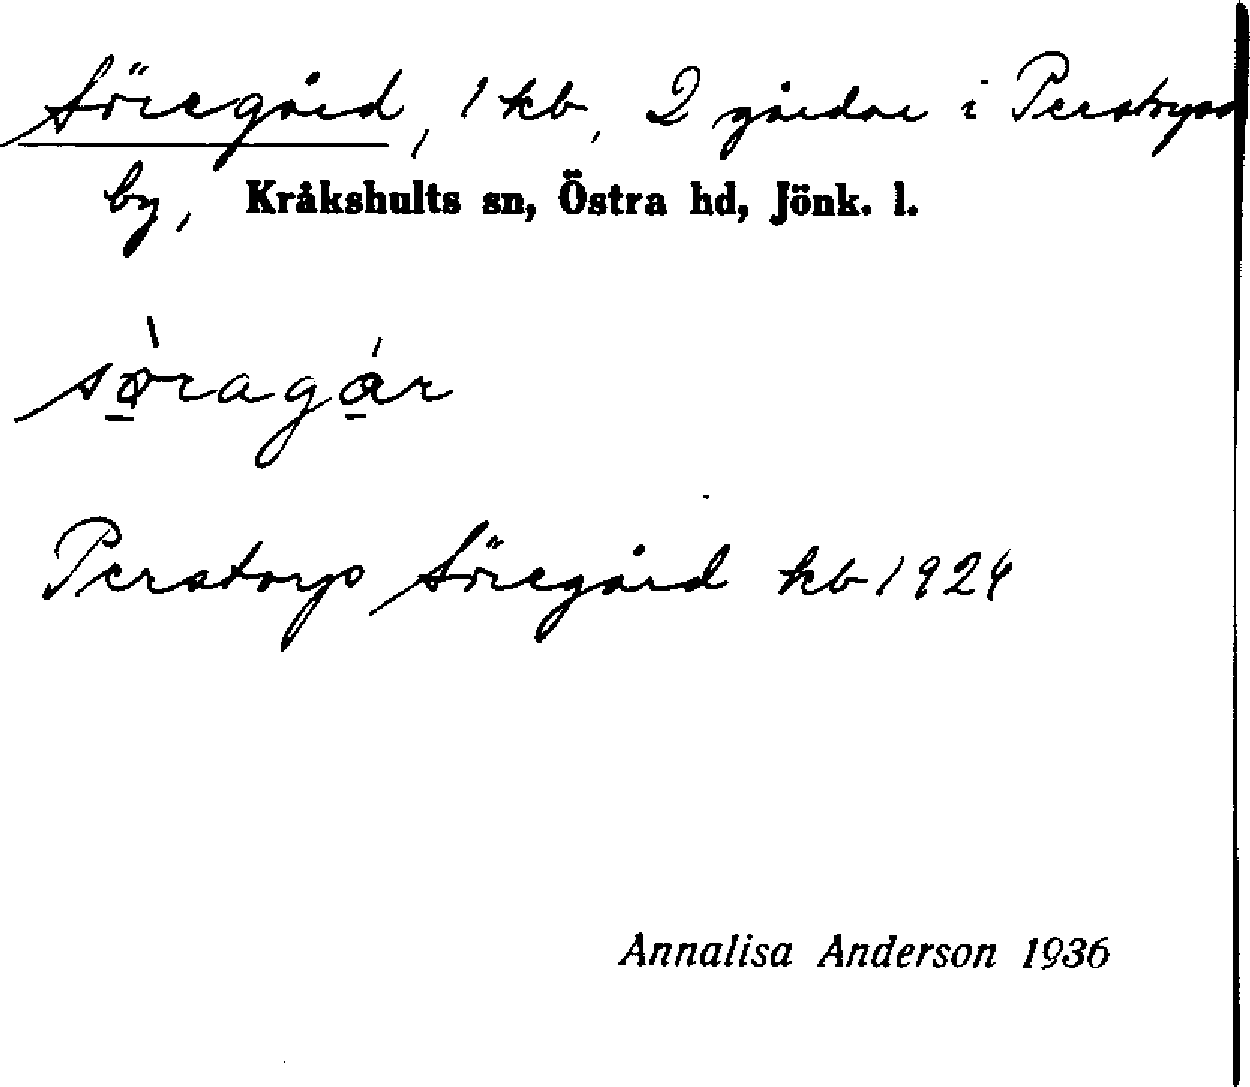 Söregård, 1 kb, 2 gårdar i Perstorps
by, Kråkshults sn, Östra hd, Jönk. l.
sø̀ragár
Perstorps Söregård kb 1924
Annalisa Anderson 1936